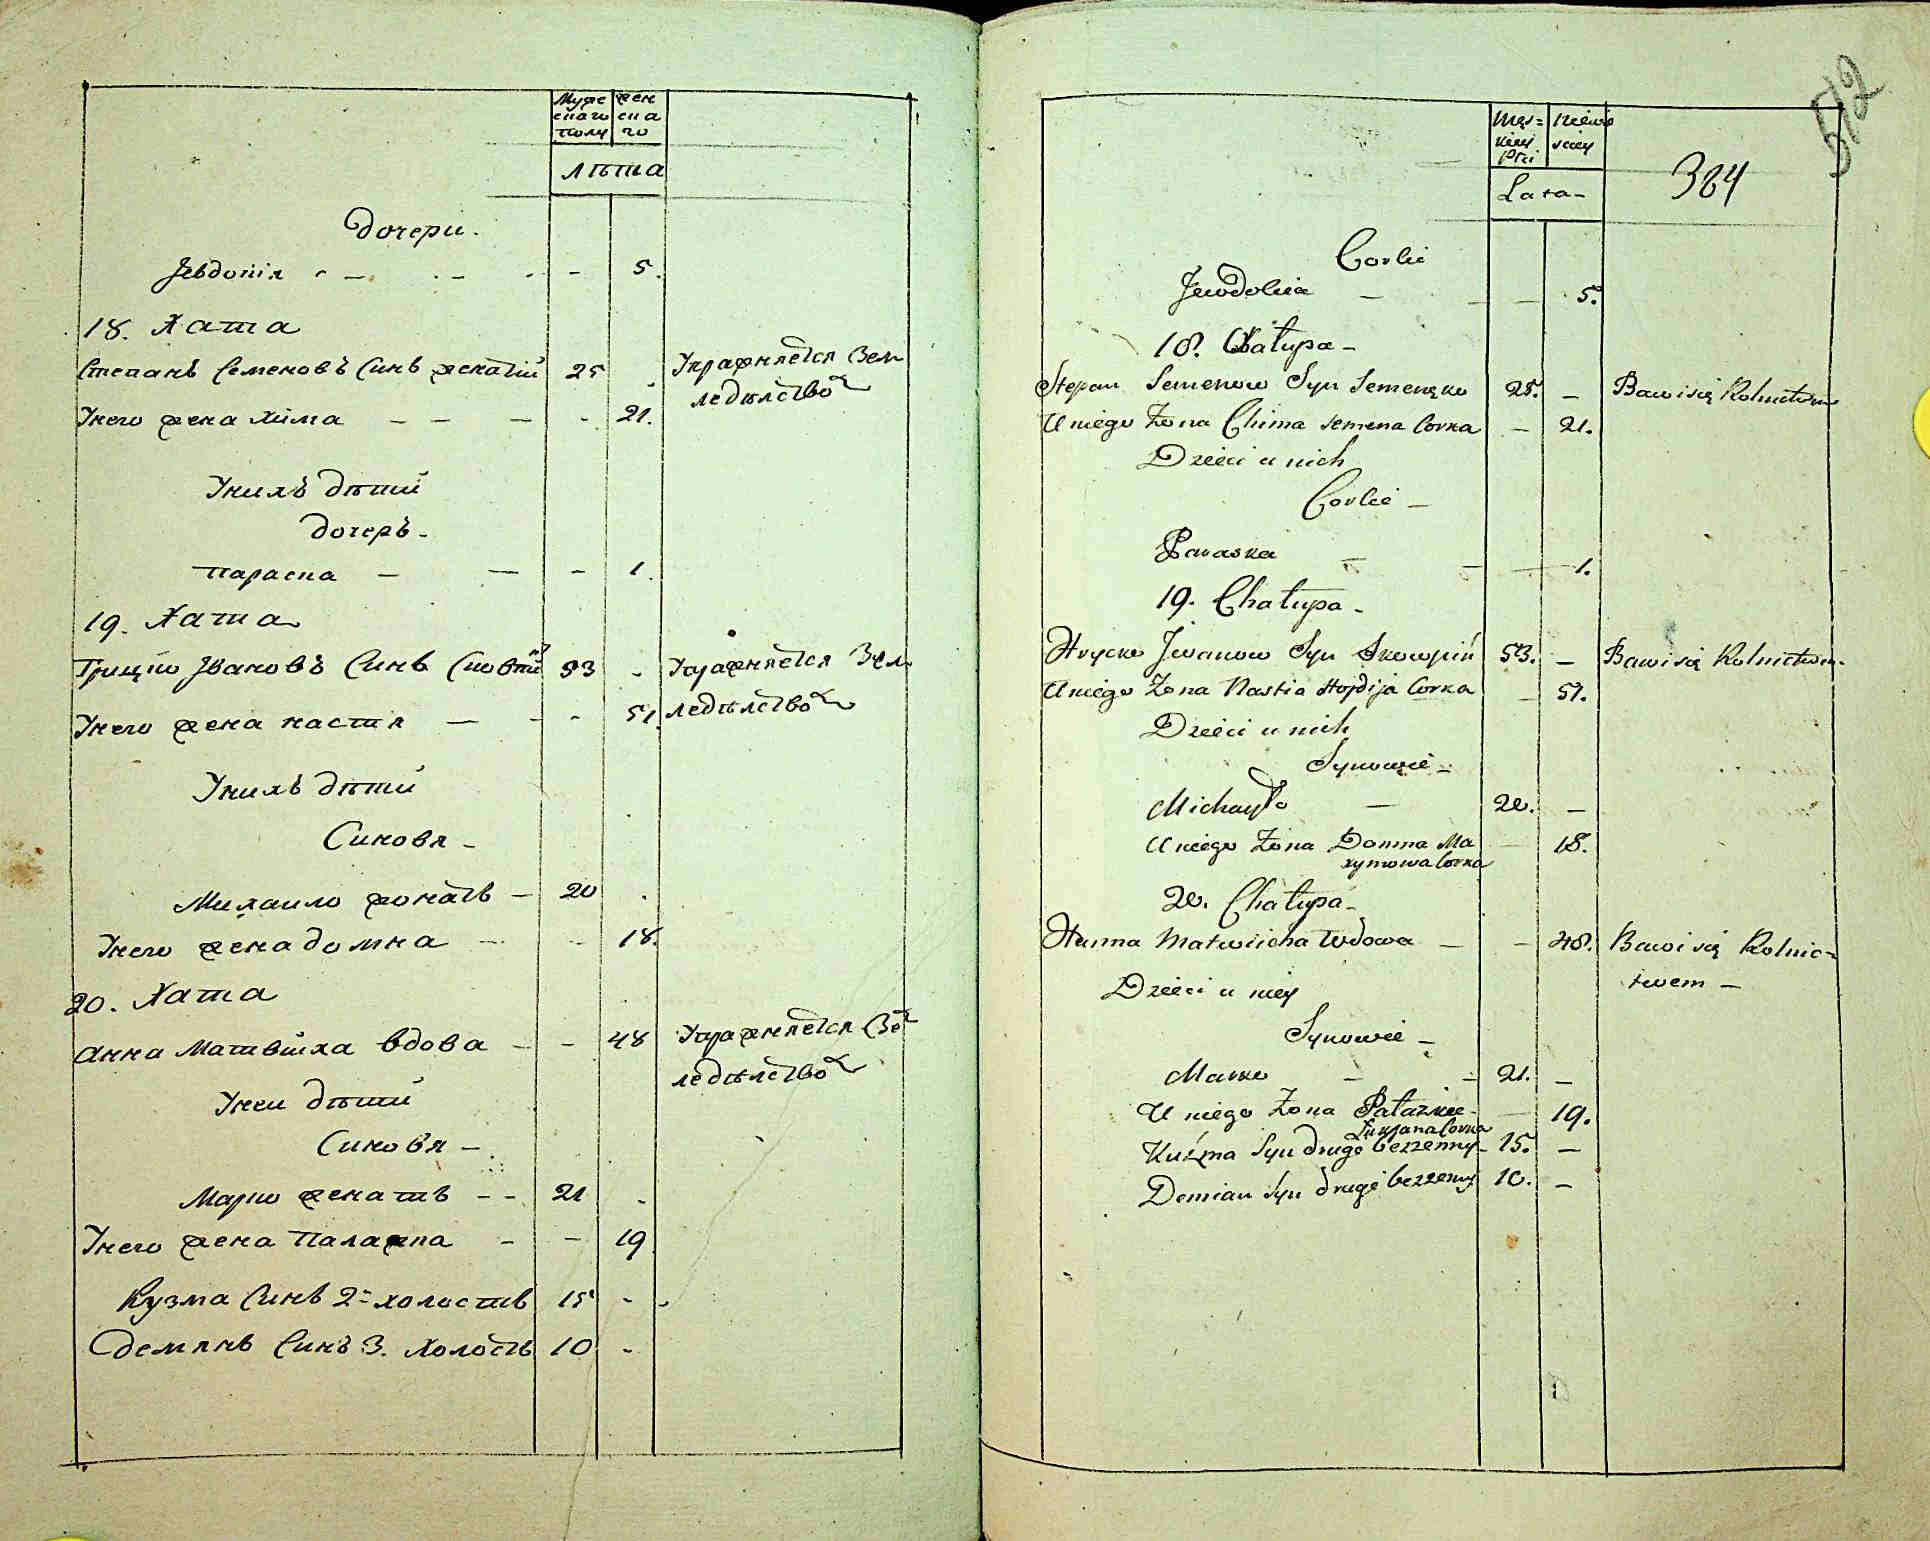 Муже
скаго
полу
жен
ска
го
лѣта
Дочери.
Јевдокія - - - - 5.
18. Хата
Степанъ Семеновъ Синъ женатий 25 -
Упражняется Зем
ледѣлство
Унего жена Хима - - - - 21.
Унихъ дѣтий
дочеръ -
параска - - - 1.
19. Хата
Грицко Јвановъ Синъ 53 -
Упражняется Зем
ледѣлство
Унего жена настя - - - 51
Унихъ дѣтий
Синовя -
Михаило жонатъ - 20 -
Унего жена домна - - 18.
20. Хата
Анна Матвииха вдова - - 48
Упражняется Зе
ледѣлство
Унеи дѣтий
Синовя -
Марко женатъ - - 21 -
Унего жена Палажка - - 19
Кузма Синъ 2 холостъ 15 -
Демянъ Синъ 3. холостъ 10 -
572
Męs=
kiey
płci
Niew
sciey
Lata -
384
Corki
Jewdokia - - - 5.
18. Chałupa -
Stepan Semenow Syn Semenęko 25. -
Bawi się Rolnictwem
U niego Żona Chima Semena Corka - 21.
Dzieci u nich
Corki -
Paraska - - - 1.
19. Chałupa -
Hrycko Jwanow Syn Skowpiń 53. -
Bawi się Rolnictwem -
U niego Żona Nastia Corka - 51.
Dzieci u nich
Synowie -
Michayło - 20. -
U niego Żona Domna Ma
xymowa Corka - 18.
20. Chałupa -
Hanna Matwiicha Wdowa - - 48.
Bawi się Rolnic=
twem -
Dzieci u niey
Synowie -
Marko - - 21. -
U niego Żona Pałażka - - 19.
Łukjana Corka
Kuźma Syn drugi bezzenny - 15. -
Demian Syn drugi bezzenny 10. -